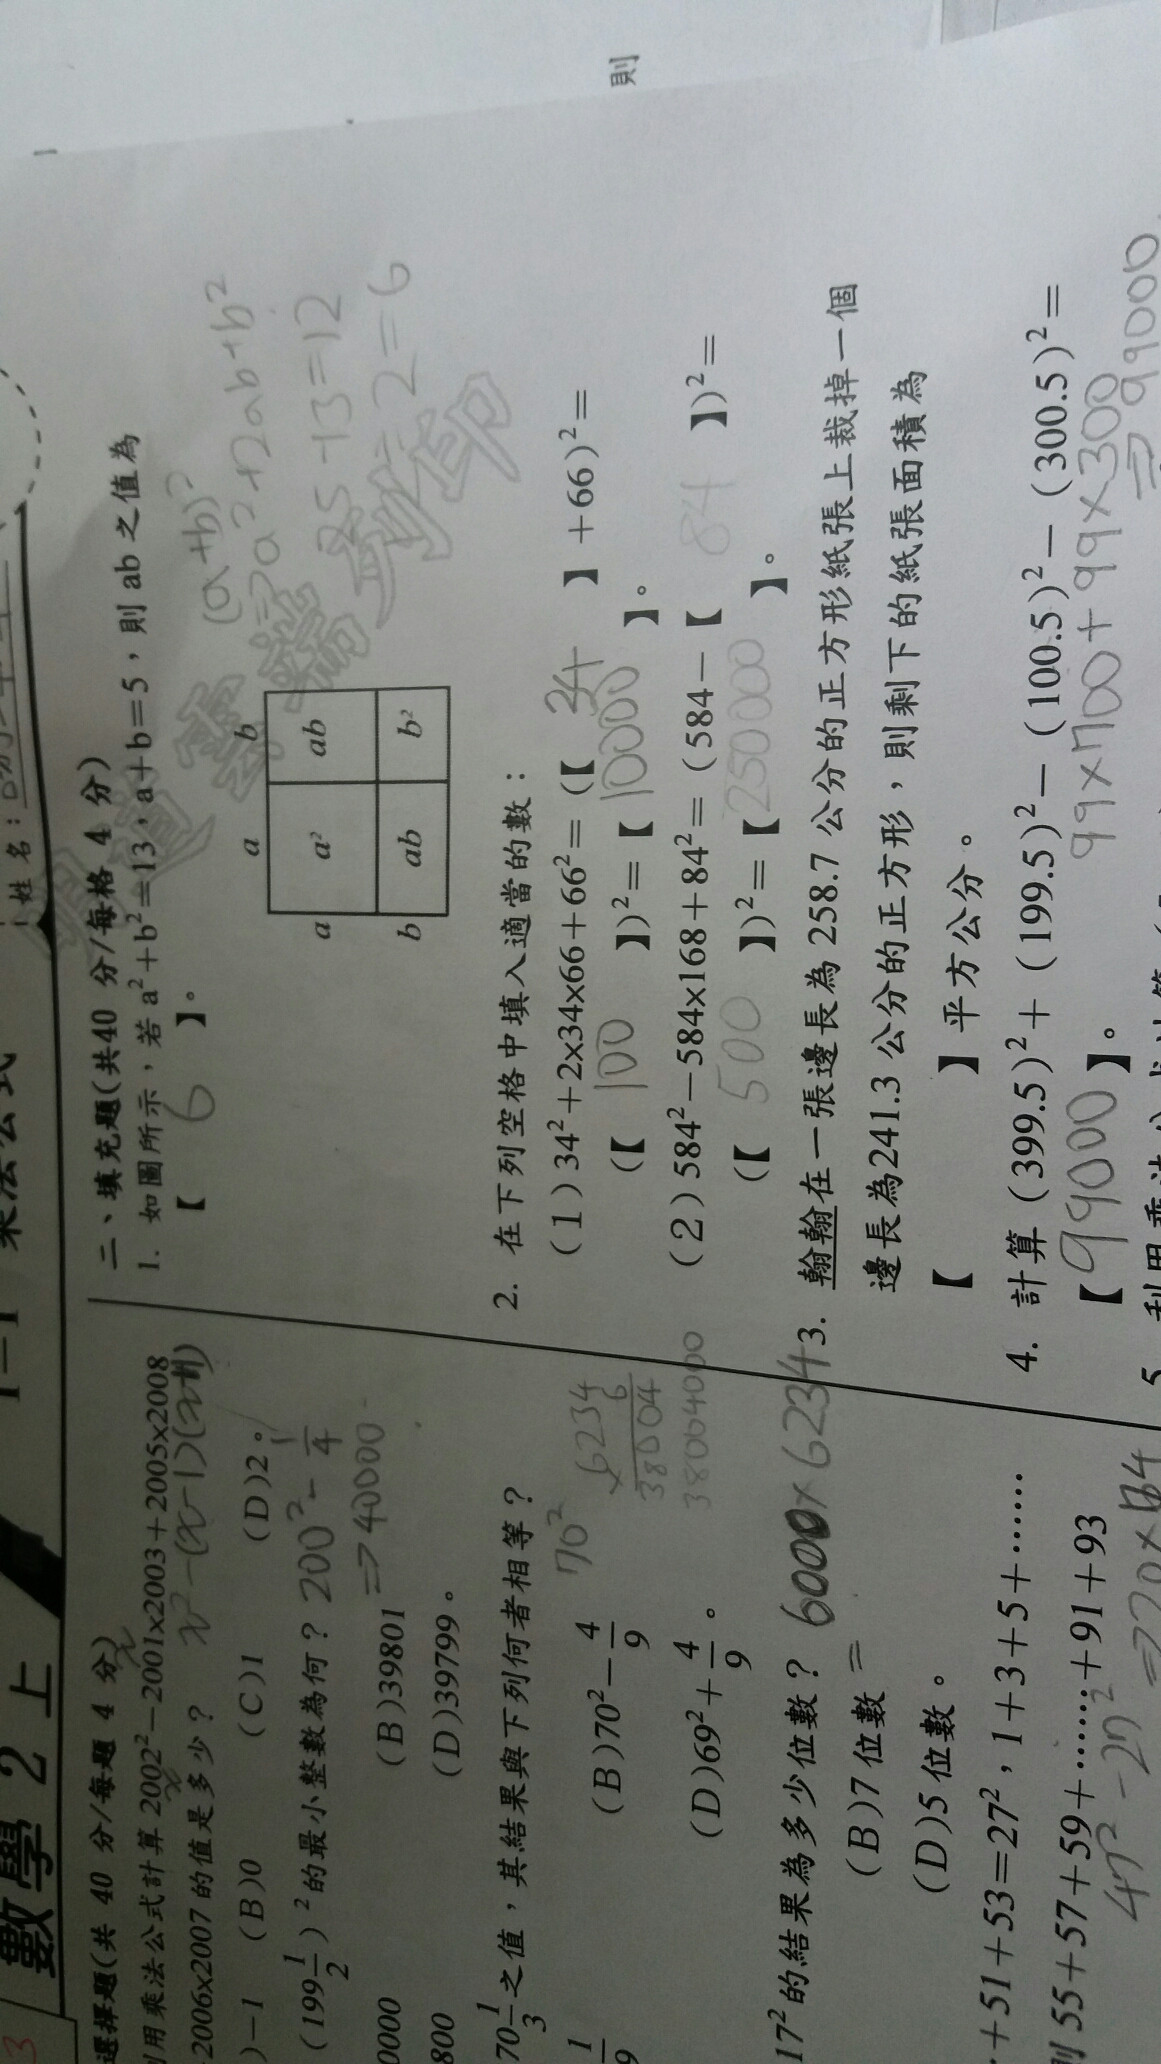 數學 2 上
姓名：
選擇題(共 40 分/每題 4 分)
利用乘法公式計算 2002²－2001x2003＋2005x2008
2006x2007 的值是多少？
x²－(x－1)(x＋1)
)－1 (B)0 (C)1 (D)2。
(199 1/2)² 的最小整數為何？ 200²－1/4
0000 (B)39801 ⇒40000
800 (D)39799。
70 1/3 之值，其結果與下列何者相等？
70²
(B)70²－4/9
1/9
(D)69²＋4/9。
6234
x 6
38004
38004000
17² 的結果為多少位數？ 6000×6234
(B)7 位數 =
(D)5 位數。
＋51＋53＝27²，1＋3＋5＋……
則 55＋57＋59＋……＋91＋93
47²－27²
⇒20×
二、填充題(共40 分/每格 4 分)
1. 如圖所示，若 a²＋b²＝13，a＋b＝5，則 ab 之值為
【 6 】。
(a+b)²
⇒a²+2ab+b²
25-13=12
÷2=6
a b
a a² ab
b ab b²
2. 在下列空格中填入適當的數：
(1)34²＋2x34x66＋66²＝(【 34 】＋66)²＝
(【 100 】)²＝【 10000 】。
(2)584²－584x168＋84²＝(584－【 84 】)²＝
(【 500 】)²＝【 250000 】。
3. 翰翰在一張邊長為 258.7 公分的正方形紙張上裁掉一個
邊長為241.3 公分的正方形，則剩下的紙張面積為
【 】平方公分。
4. 計算 (399.5)²＋(199.5)²－(100.5)²－(300.5)²＝
【 99000 】。
99×700+99×300
⇒99000
則